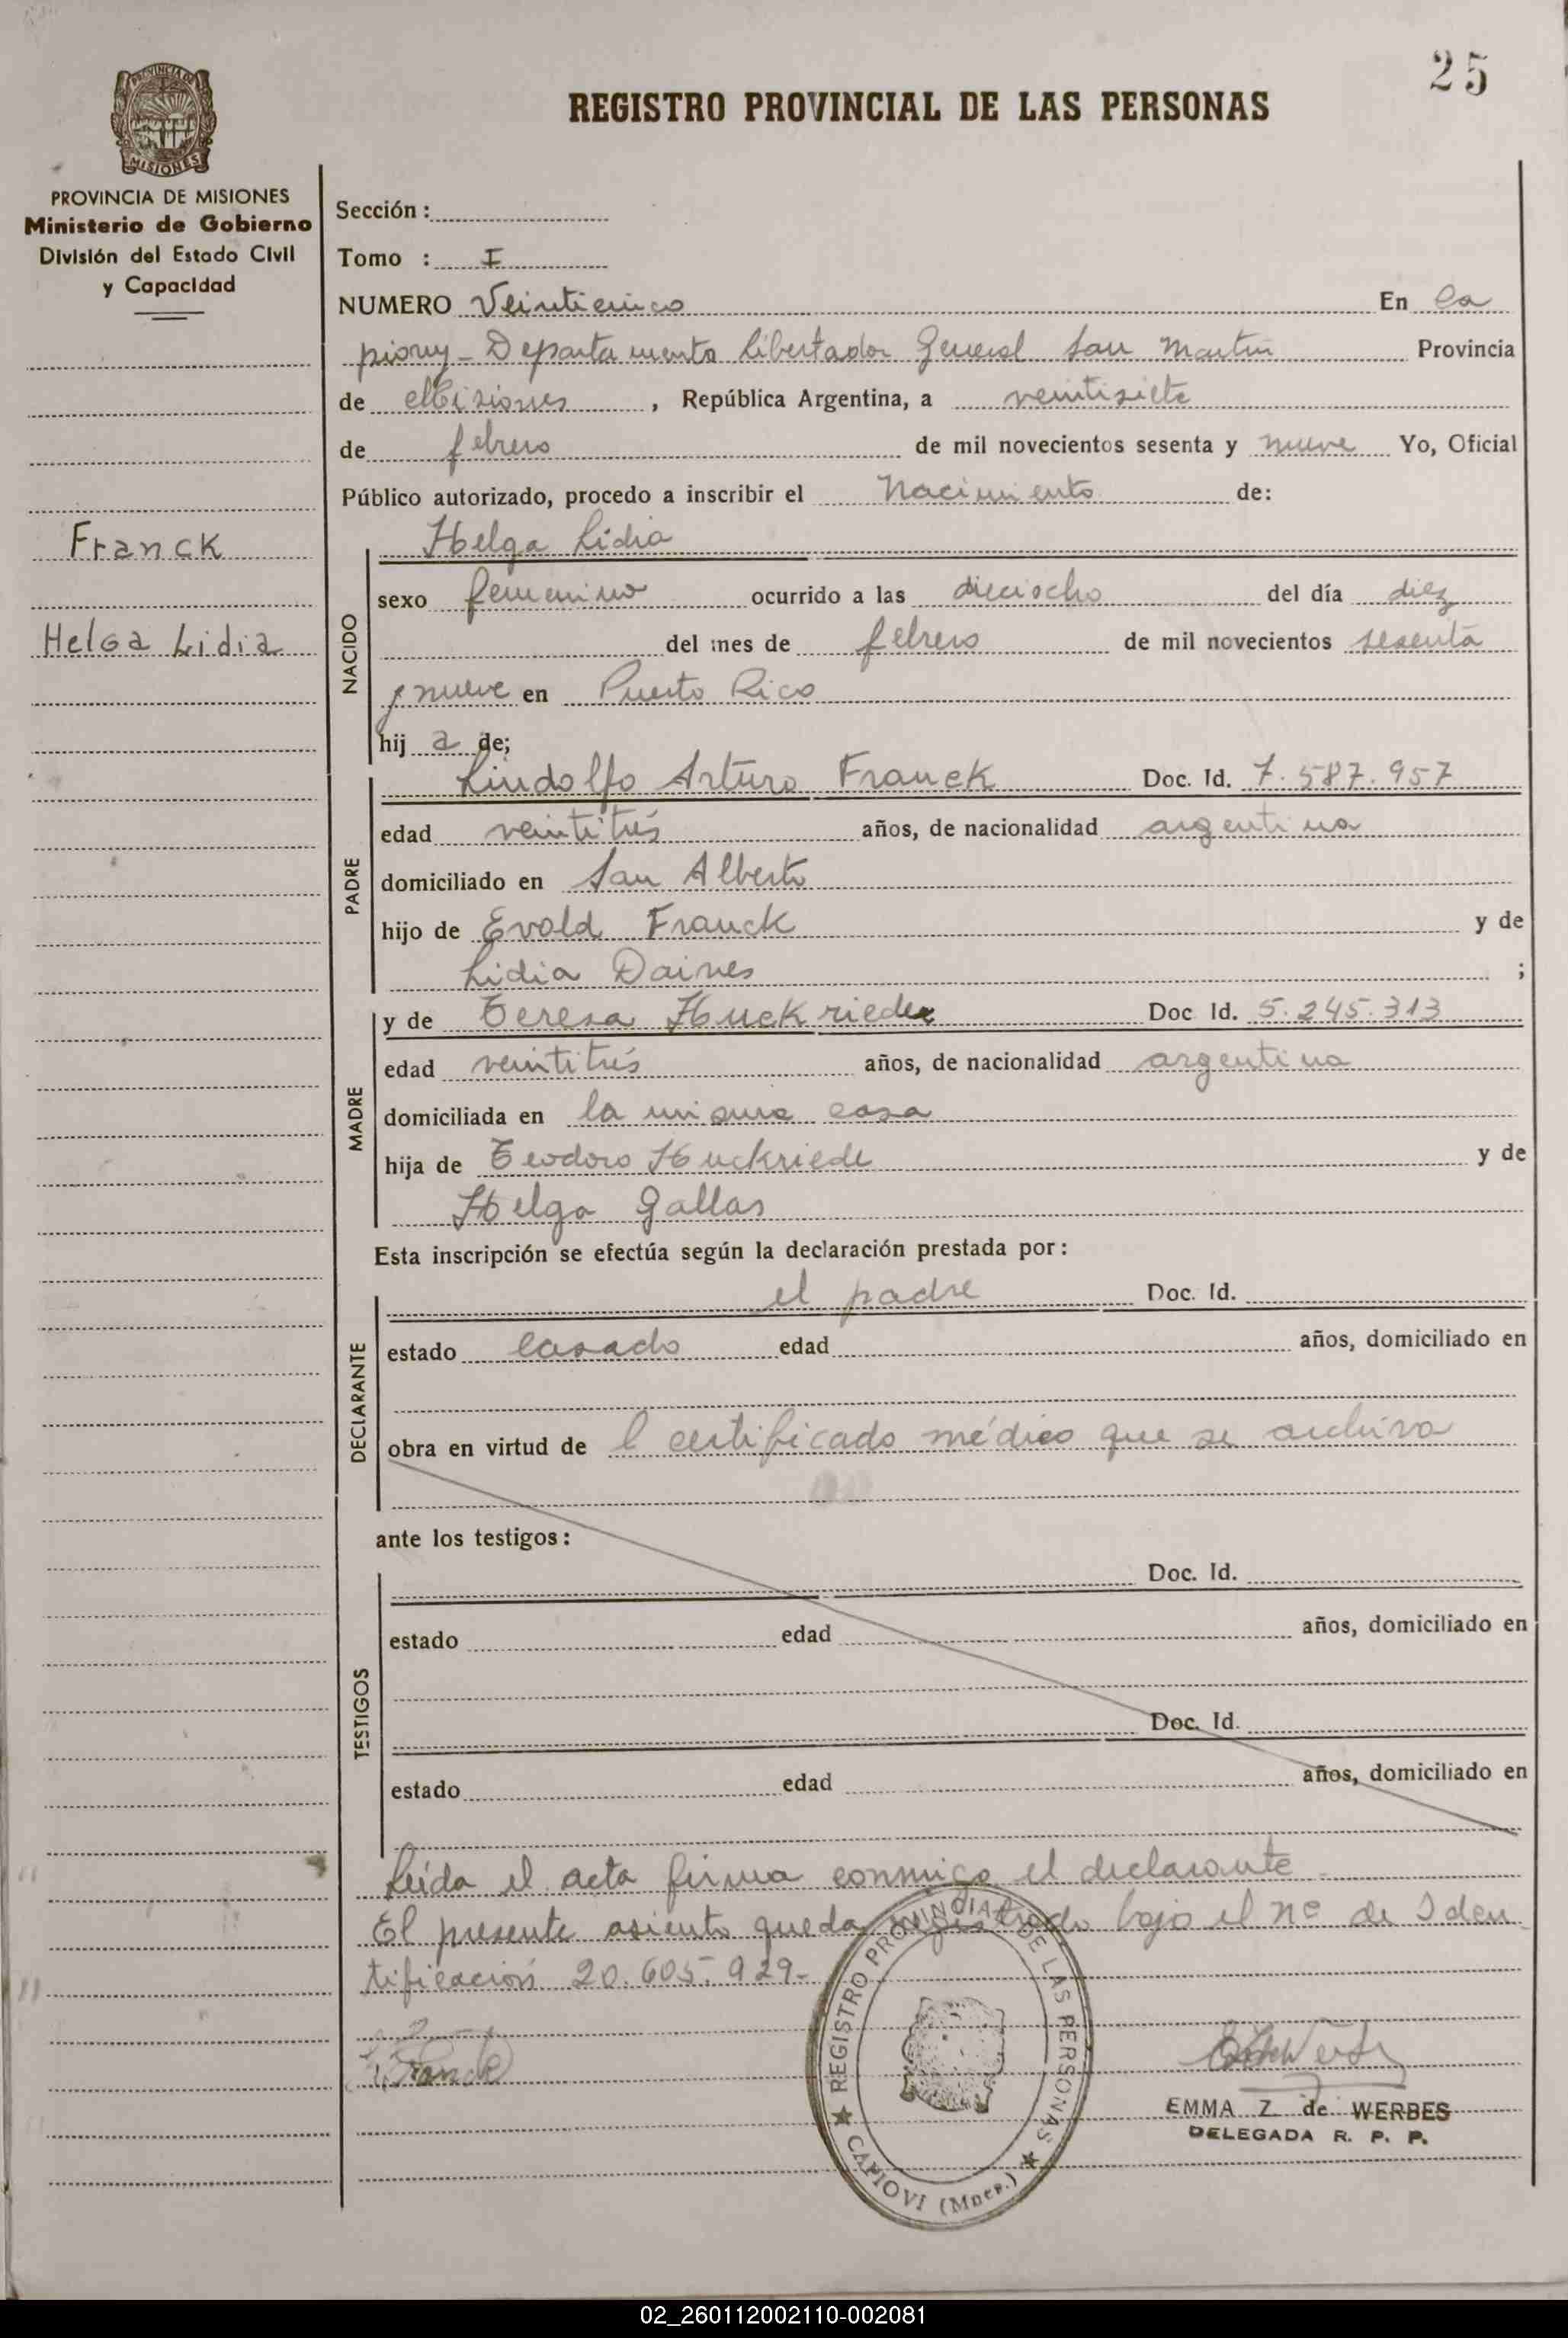 25
PROVINCIA DE MISIONES
REGISTRO PROVINCIAL DE LAS PERSONAS
PROVINCIA DE MISIONES
Ministerio de Gobierno
División del Estado Civil
y Capacidad
Franck
Helga Lidia
Sección :
Tomo : I
NUMERO Veinticinco En Ca
piovy - Departamento Libertador General San Martín Provincia
de Misiones , República Argentina, a veintisiete
de febrero de mil novecientos sesenta y nueve Yo, Oficial
Público autorizado, procedo a inscribir el Nacimiento de:
NACIDO
Helga Lidia
sexo femenino ocurrido a las dieciocho del día diez
del mes de febrero de mil novecientos sesenta
y nueve en Puerto Rico
hij a de;
PADRE
Lindolfo Arturo Franck Doc. Id. 7.587.957
edad veintitrés años, de nacionalidad argentina
domiciliado en San Alberto
hijo de Evold Franck y de
Lidia Daines ;
MADRE
y de Teresa Huckriede Doc Id. 5.245.313
edad veintitrés años, de nacionalidad argentina
domiciliada en la misma casa
hija de Teodoro Huckriede y de
Helga Gallas
Esta inscripción se efectúa según la declaración prestada por :
DECLARANTE
el padre Doc. Id.
estado casado edad años, domiciliado en
obra en virtud de l certificado médico que se archiva
ante los testigos :
TESTIGOS
Doc. Id.
estado edad años, domiciliado en
Doc. Id.
estado edad años, domiciliado en
Leída el acta firma conmigo el declarante -
El presente asiento queda registrado bajo el nº de Iden
tificación 20.605.929-
REGISTRO PROVINCIAL DE LAS PERSONAS
CAPIOVI (Mnes.)
EMMA Z de WERBES
DELEGADA R. P. P.
02_260112002110-002081